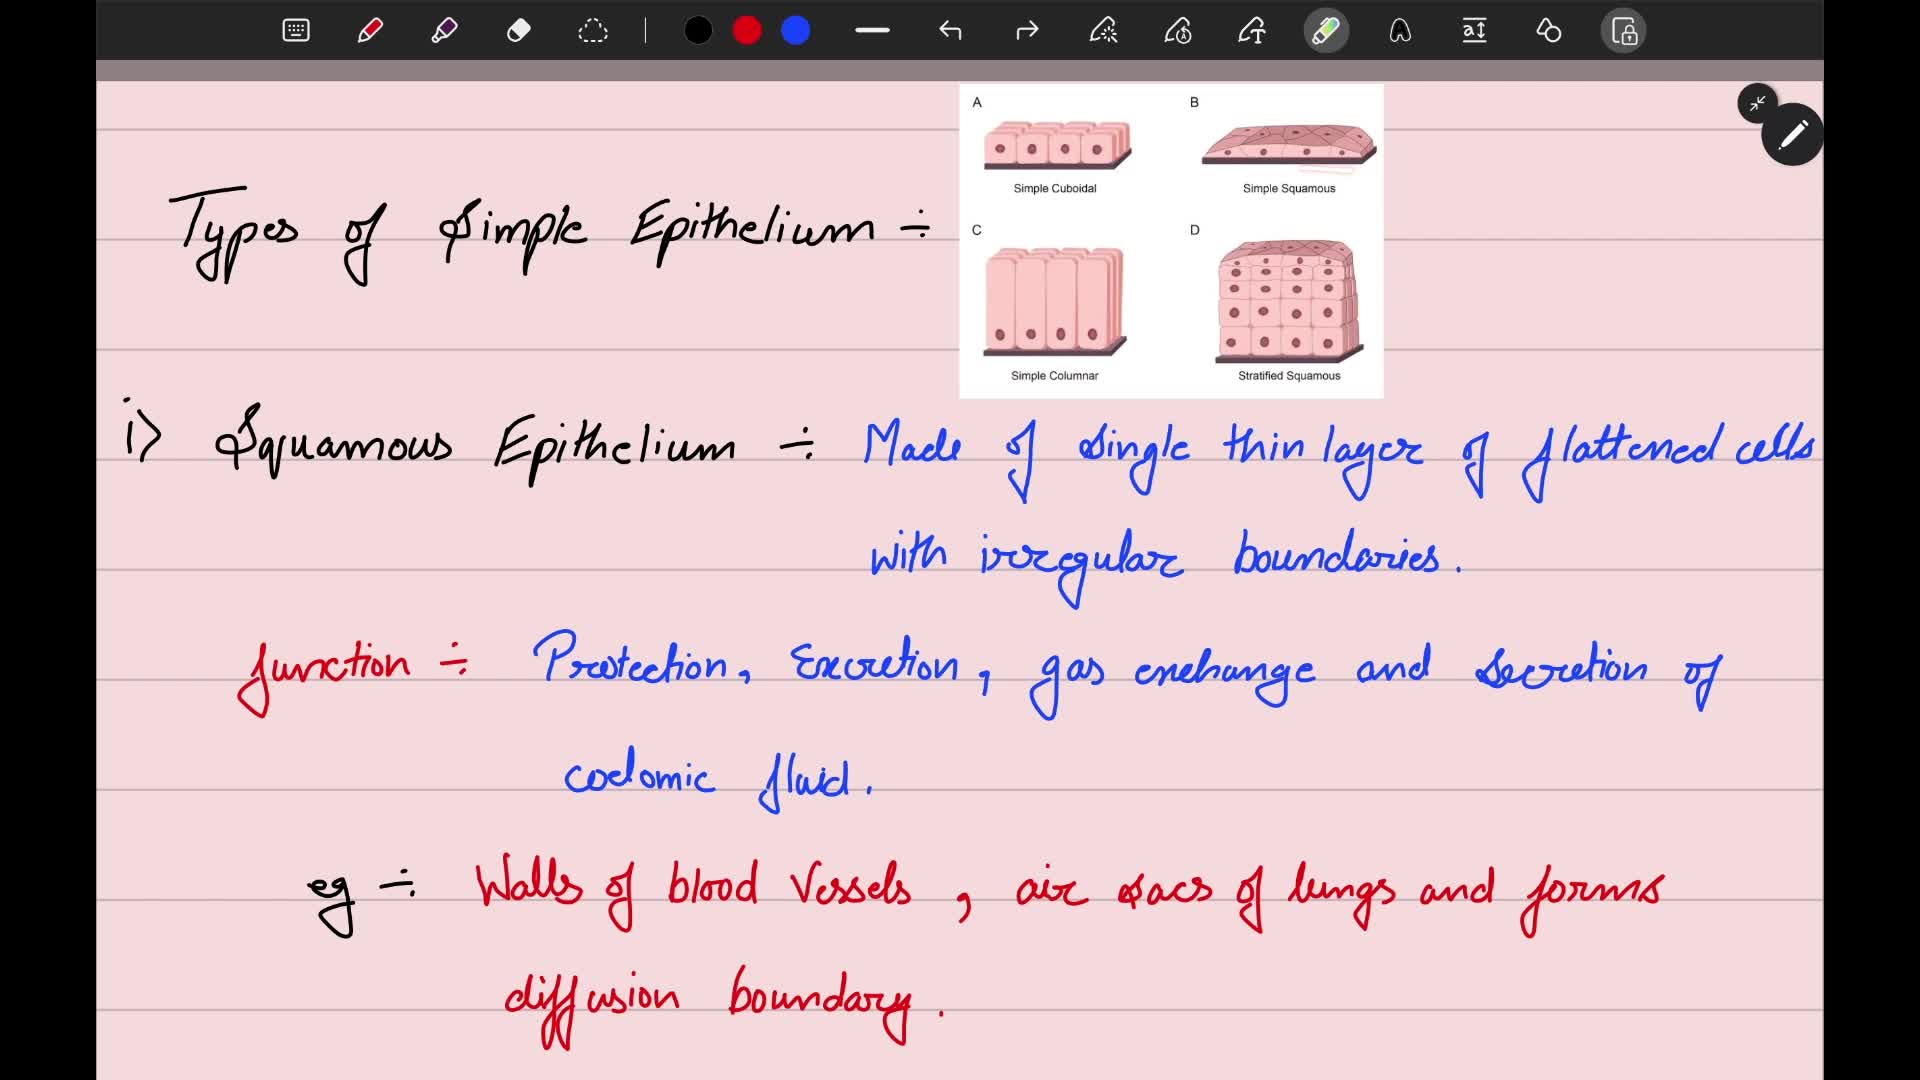 A
B
Simple Cuboidal
Simple Squamous
Types of Simple Epithelium ÷
C
D
Simple Columnar
Stratified Squamous
i> Squamous Epithelium ÷ Made of single thin layer of flattened cells
with irregular boundaries.
function ÷ Protection, Excretion, gas exchange and secretion of
coelomic fluid.
eg ÷ Walls of blood Vessels, air sacs of lungs and forms
diffusion boundary.